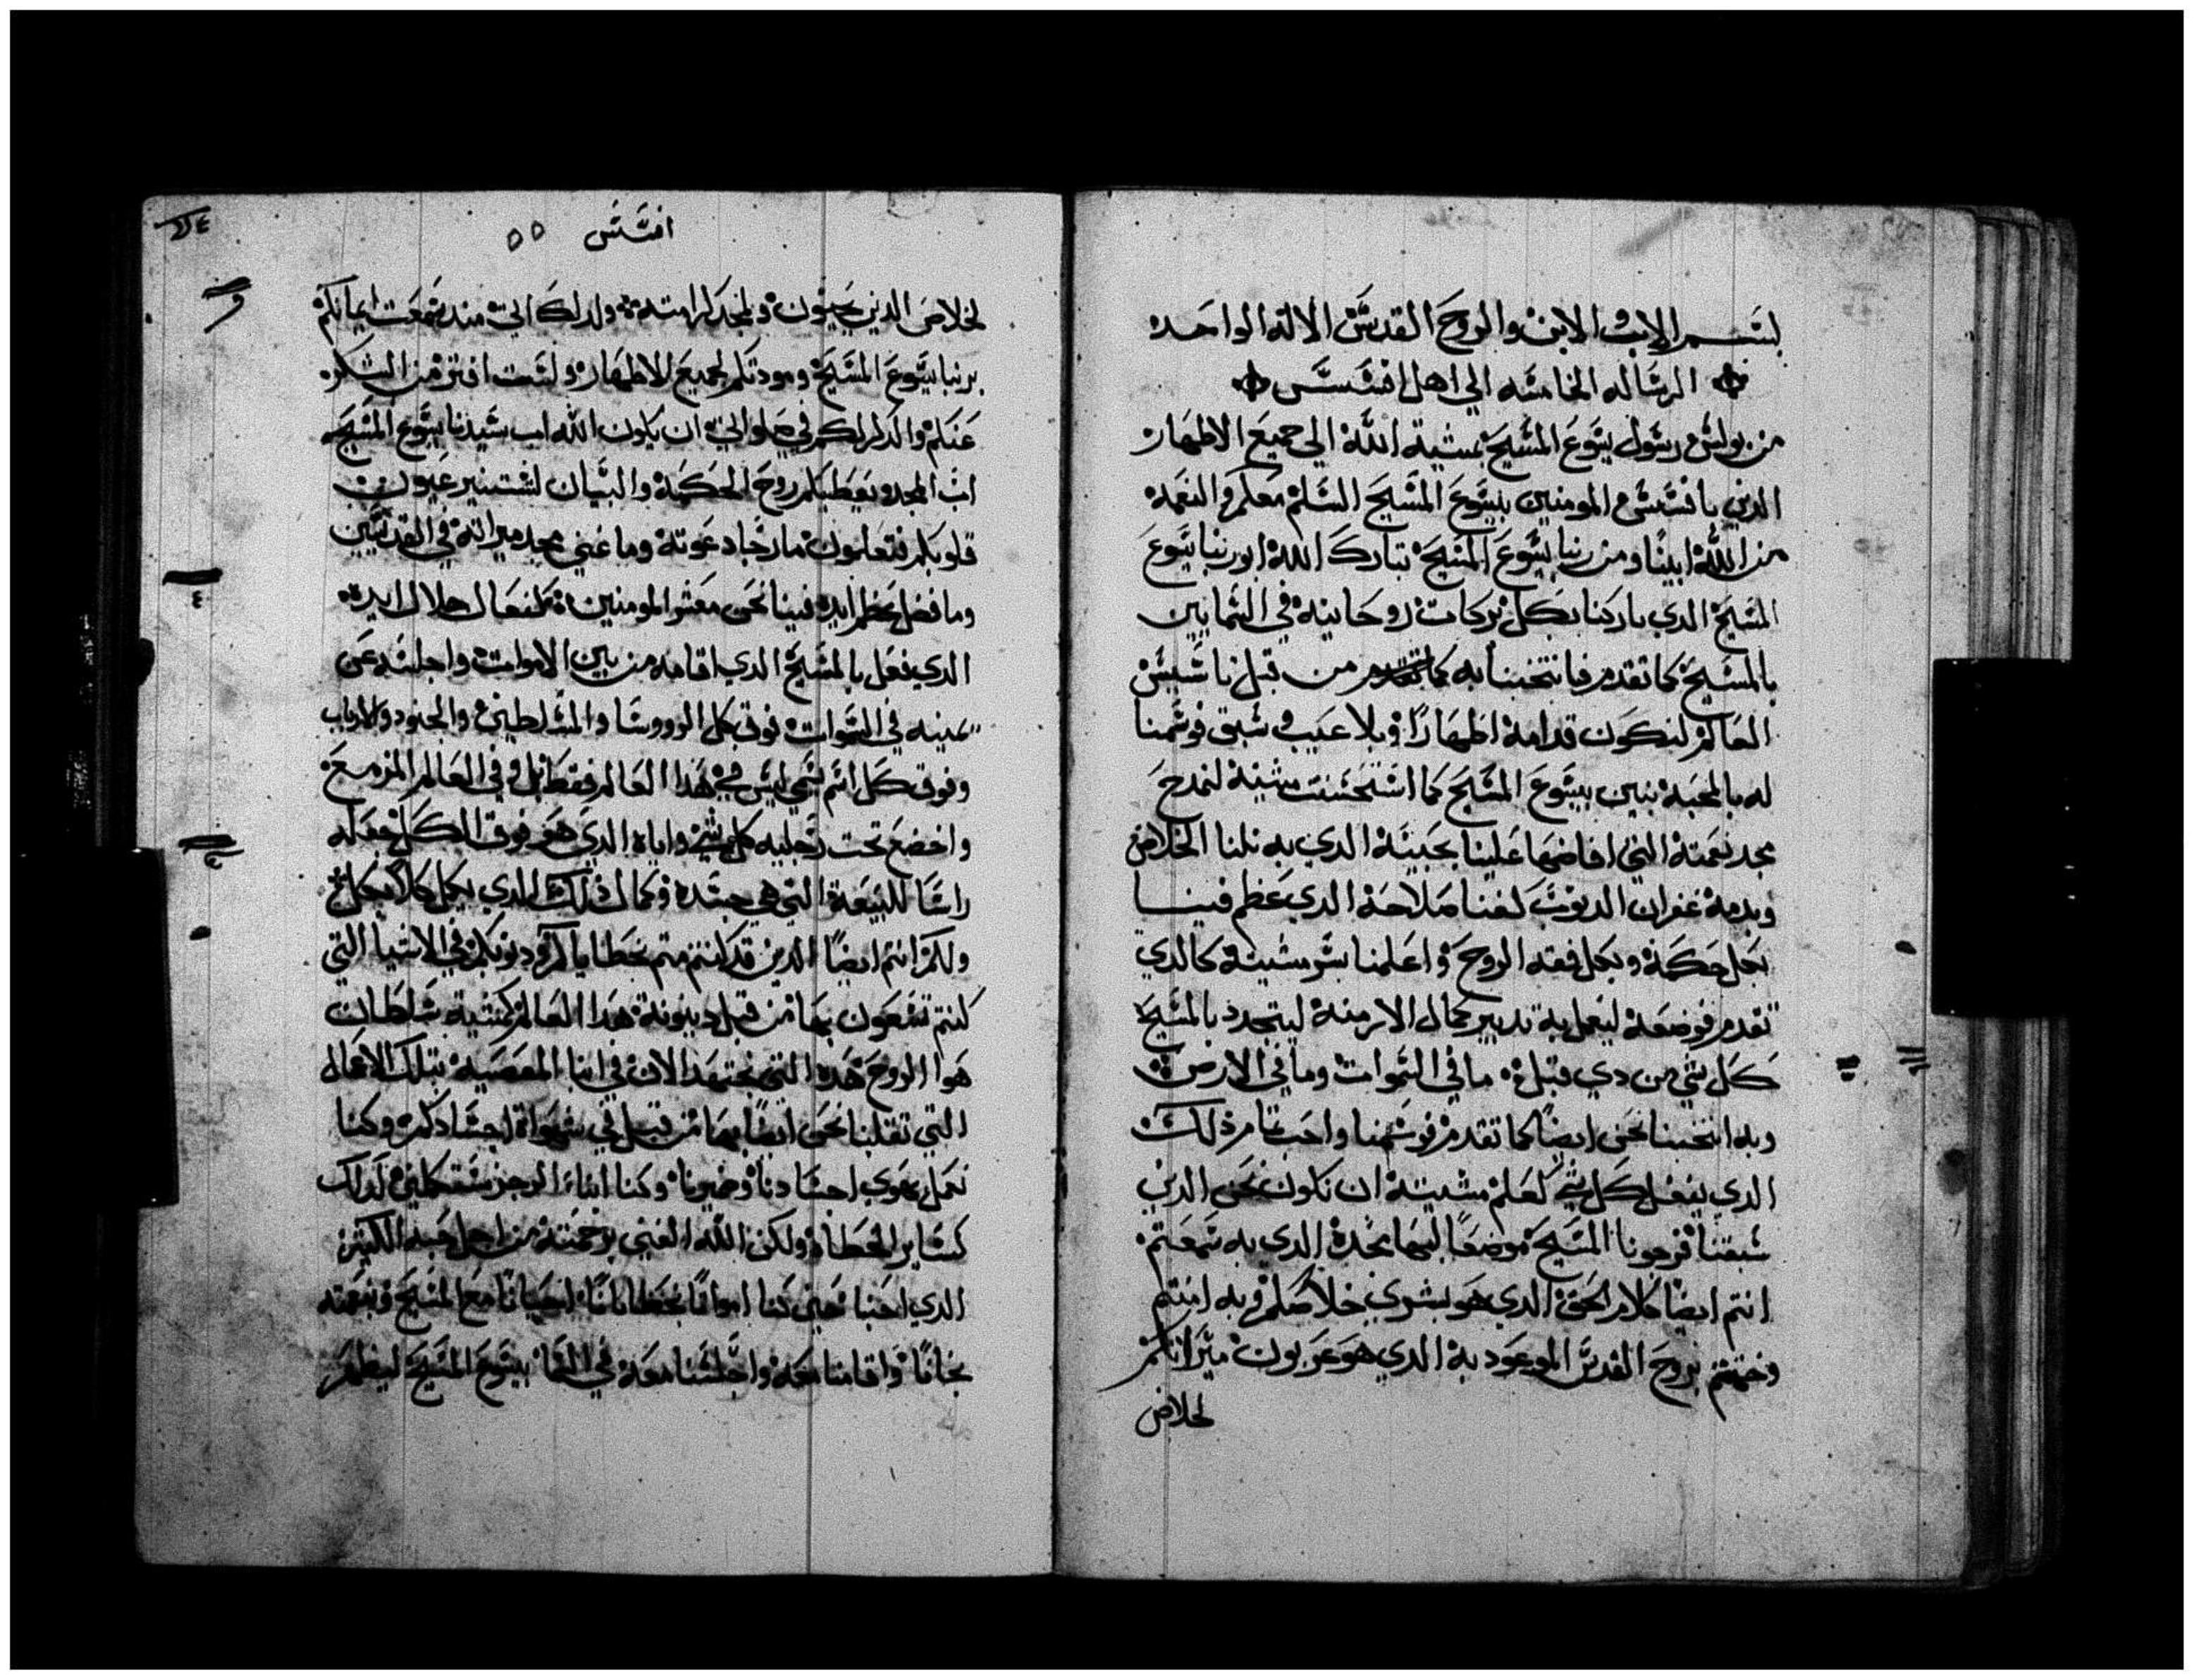 بسم الاب والابن والروح القدس الاله الواحد
الرساله الخامسه الي اهل افسس
من بولس رسول يسوع المسيح بمشية الله الي جميع الاطهار
الدين بافسس المومنين بيسوع المسيح السلم معكم والنعمه
من الله ابينا ومن ربنا يسوع المسيح تبارك الله ابو ربنا يسوع
المسيح الدي باركنا بكل بركات روحانيه في السمايين
بالمسيح كما تقدم فانتخبنا به من قبل ناسيس
العالم لنكون قدامه اطهارًا وبلا عيب وسبق فوسمنا
له بالمحبه بنين بيسوع المسيح كما استحسنت مشيته لنمدح
مجد نعمته التي افاضها علينا بحبيبه الدي به نلنا الخلاص
وبدمه غفران الدنوب لغنا صلاحه الدي عظم فينا
بكل حكمه وبكل فقه الروح واعلمنا بسر مشيته كالدي
تقدم فوضعه ليعمل به تدبير كمال الازمنه ليتجدد بالمسيح
كل شي من دي قبل ما في السموات وما في الارض
وبه انتخبنا نحن ايضًا كما تقدم فوسمنا واحب تمام ذلك
الدي يفعل كل شي كعلم مشيته ان نكون نحن الدين
سبقنا فرجونا المسيح موضعًا لبها مجده الدي به سمعتم
انتم ايضًا كلام الحق الدي هو بشري خلاصكم وبه امنتم
وختمتم بروح القدس الموعود به الدي هو عربون ميراثكم
لخلاص
افسس ٥٥
لخلاص الدين يحيون ولمجد كرامته ولدلك اني مند سمعت ايمانكم
بربنا يسوع المسيح ومودتكم لجميع الاطهار ولست افتر من الشكر
عنكم والدكر لكم في صلواتي ان يكون الله اب سيدنا يسوع المسيح
اب المجد يعطيكم روح الحكمه والبيان لتستنير عيون
قلوبكم فتعلمون ما رجا دعوته وما غني مجد ميراثه في القديسين
وما فضل عظم ايده فينا نحن معشر المومنين كفعال جلال ايده
الدي فعل بالمسيح الدي اقامه من بين الاموات واجلسه عن
يمينه في السموات فوق كل الرووسا والمسلطين والجنود والارباب
وفوق كل اسم يسمي ليس في هدا العالم فقط بل وفي العالم المزمع
واخضع تحت رجليه كل شي واياه الدي هو فوق الكل جعله
راسًا للبيعة التي هي جسده وكمال ذلك الدي يكمل كلاً بكل
ولكم انتم ايضًا الدين قد كنتم متم بخطاياكم ودنوبكم في الاشيا التي
كنتم تسعون بها من قبل دينونة هدا العالم كمشية سلطان
هوا الروح هده التي تجتهد الان في ابنا المعصيه بتلك الاعمال
التي تقلبنا نحن ايضًا بها من قبل في شهواة اجسادكم وكنا
نعمل بهوي اجسادنا وضميرنا وكنا ابناء الرجز مستكملين لدلك
كساير الخطاه ولكن الله الغني برحمته من اجل حبه الكبير
الدي احبنا حين كنا امواتًا بخطايانا احيانا مع المسيح وبنعمته
نجانا واقامنا معه واجلسنا معه في السما بيسوع المسيح ليظهر